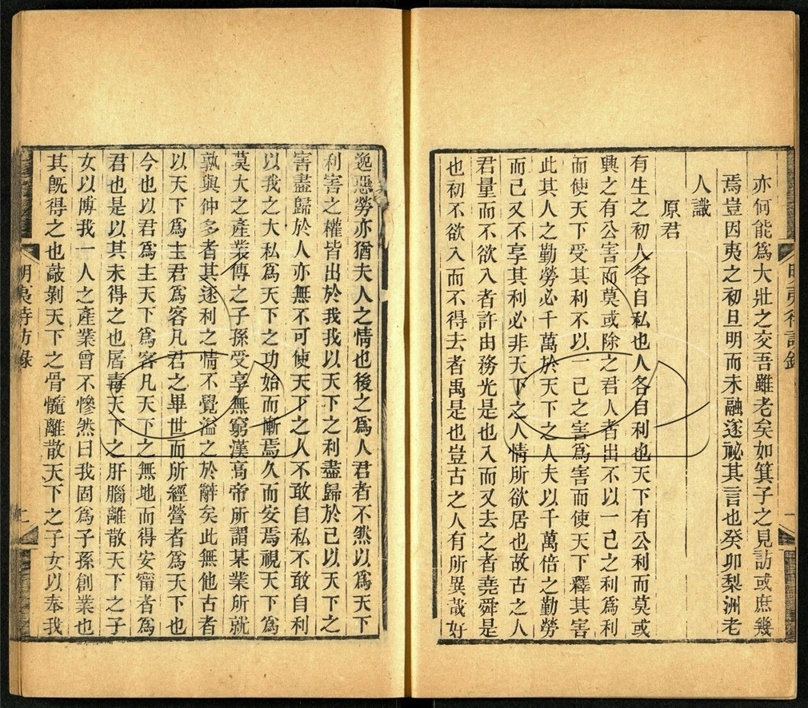 亦何能爲大壯之交吾雖老矣如箕子之見訪或庶幾
焉豈因夷之初旦明而未融遂祕其言也癸卯梨洲老
人識
原君
有生之初人各自私也人各自利也天下有公利而莫或
興之有公害而莫或除之有人者出不以一己之利爲利
而使天下受其利不以一己之害爲害而使天下釋其害
此其人之勤勞必千萬於天下之人夫以千萬倍之勤勞
而己又不享其利必非天下之人情所欲居也故古之人
君量而不欲入者許由務光是也入而又去之者堯舜是
也初不欲入而不得去者禹是也豈古之人有所異哉好
明夷待訪錄
一
逸惡勞亦猶夫人之情也後之爲人君者不然以爲天下
利害之權皆出於我我以天下之利盡歸於己以天下之
害盡歸於人亦無不可使天下之人不敢自私不敢自利
以我之大私爲天下之功始而慚焉久而安焉視天下爲
莫大之產業傳之子孫受享無窮漢高帝所謂某業所就
孰與仲多者其逐利之情不覺溢之於辭矣此無他古者
以天下爲主君爲客凡君之畢世而所經營者爲天下也
今也以君爲主天下爲客凡天下之無地而得安甯者爲
君也是以其未得之也屠毒天下之肝腦離散天下之子
女以博我一人之產業曾不慘然曰我固爲子孫創業也
其旣得之也敲剝天下之骨髓離散天下之子女以奉我
明夷待訪錄
二